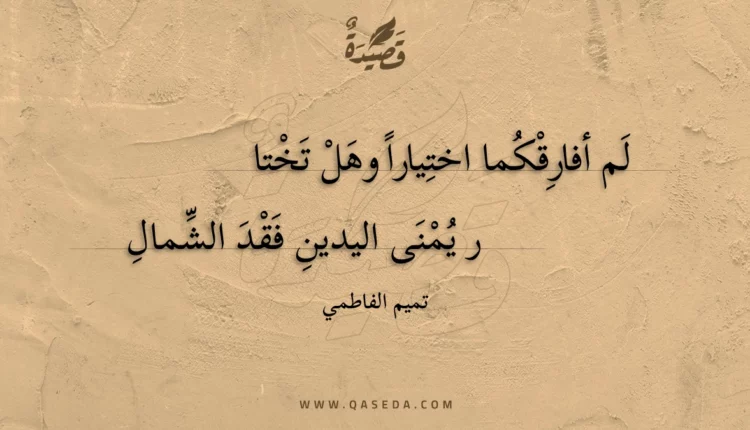 قَصِيدَةٌ
لَم أفارِقْكُما اختِياراً وهَلْ تَخْتا
ر يُمْنَى اليدينِ فَقْدَ الشِّمالِ
تميم الفاطمي
WWW.QASEDA.COM